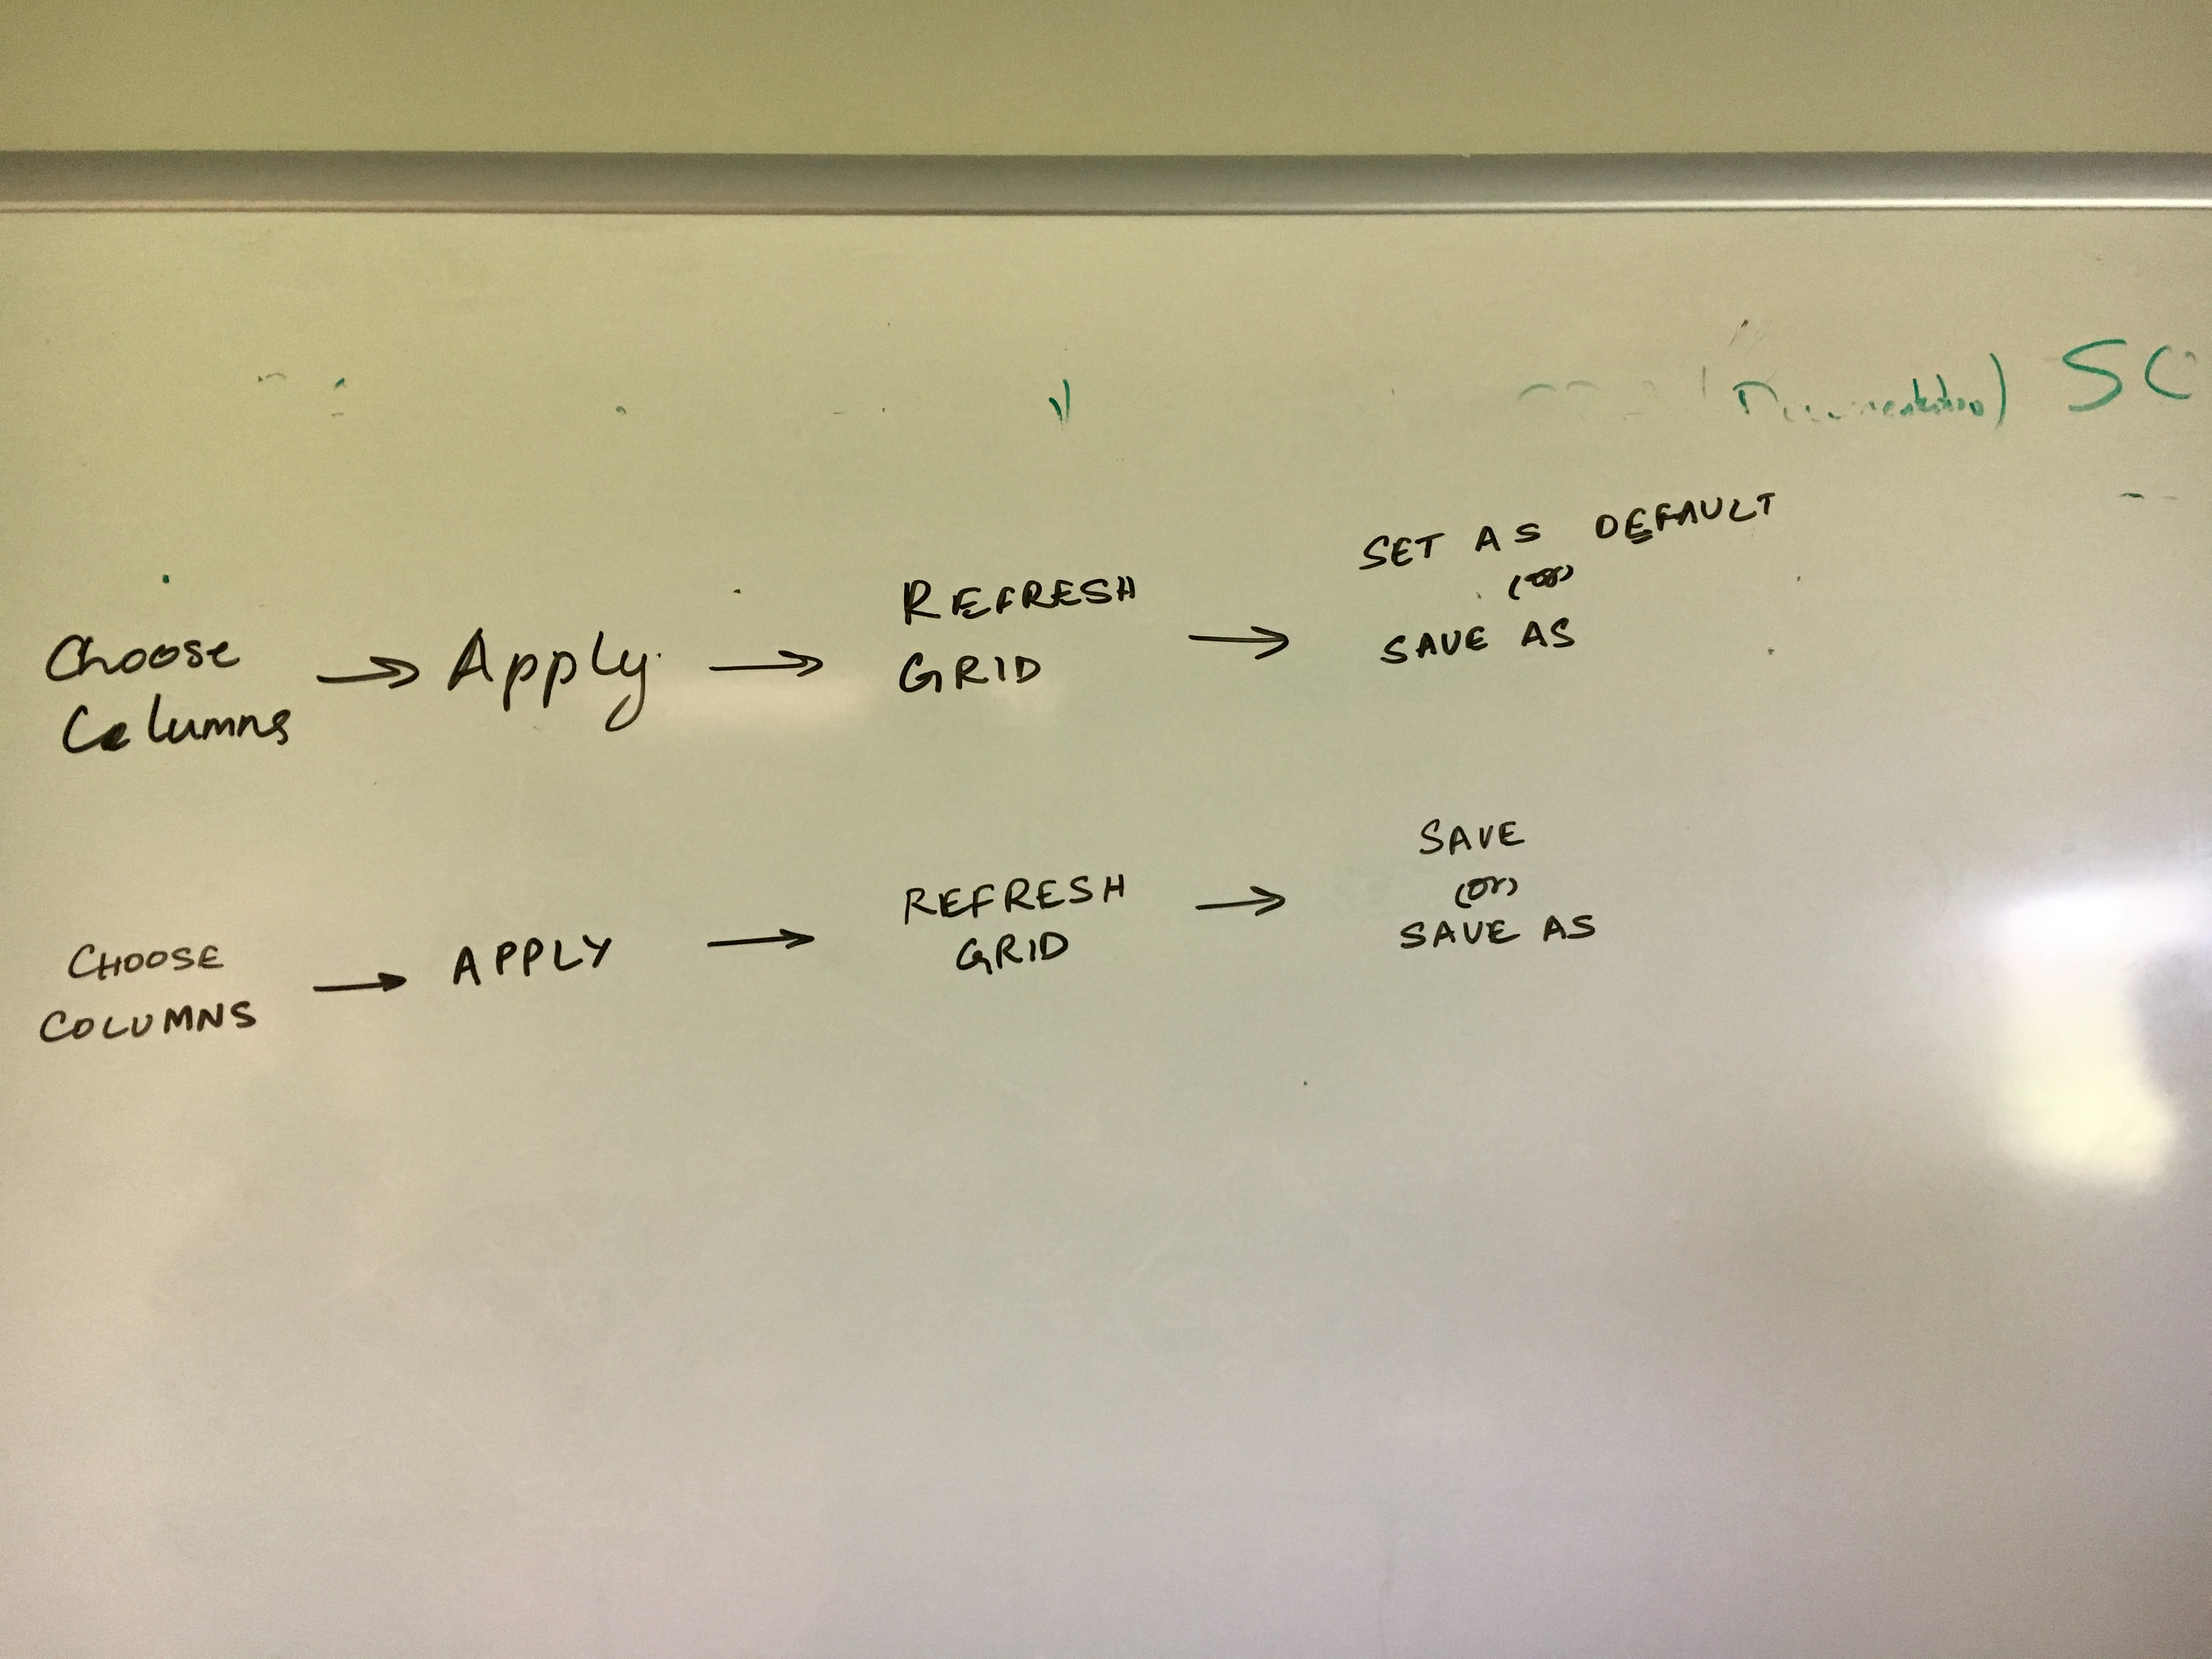 SC
Choose
Columns → Apply → REFRESH
GRID → SET AS DEFAULT
(or)
SAVE AS
CHOOSE
COLUMNS → APPLY → REFRESH
GRID → SAVE
(or)
SAVE AS